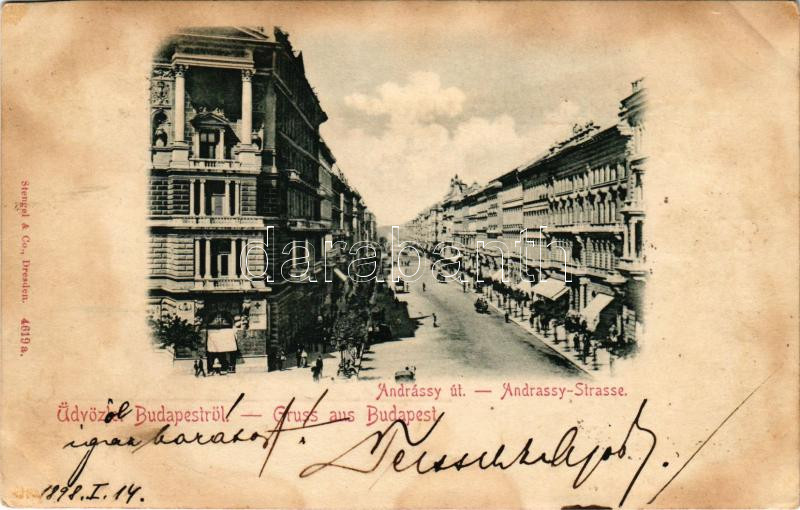 Stengel & Co., Dresden. 4619 a.
darabanth
Andrássy út. — Andrassy-Strasse.
Üdvözlet Budapestről. — Gruss aus Budapest
igaz
1898. I. 14.